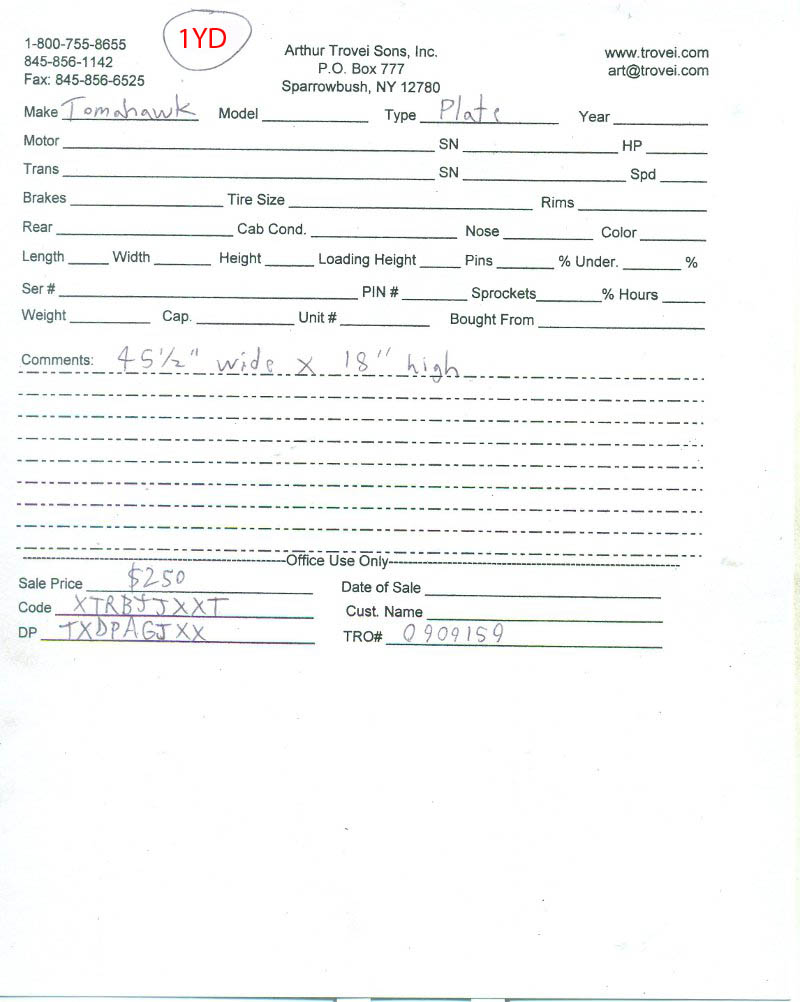 1YD
1-800-755-8655
845-856-1142
Fax: 845-856-6525
Arthur Trovei Sons, Inc.
P.O. Box 777
Sparrowbush, NY 12780
www.trovei.com
art@trovei.com
Make Tomahawk Model Type Plate Year
Motor SN HP
Trans SN Spd
Brakes Tire Size Rims
Rear Cab Cond. Nose Color
Length Width Height Loading Height Pins % Under. %
Ser # PIN # Sprockets % Hours
Weight Cap. Unit # Bought From
Comments: 45 1/2" wide x 18" high
Office Use Only
Sale Price $250 Date of Sale
Code XTRBJJXXT Cust. Name
DP TXDPAGJXX TRO# 0909159